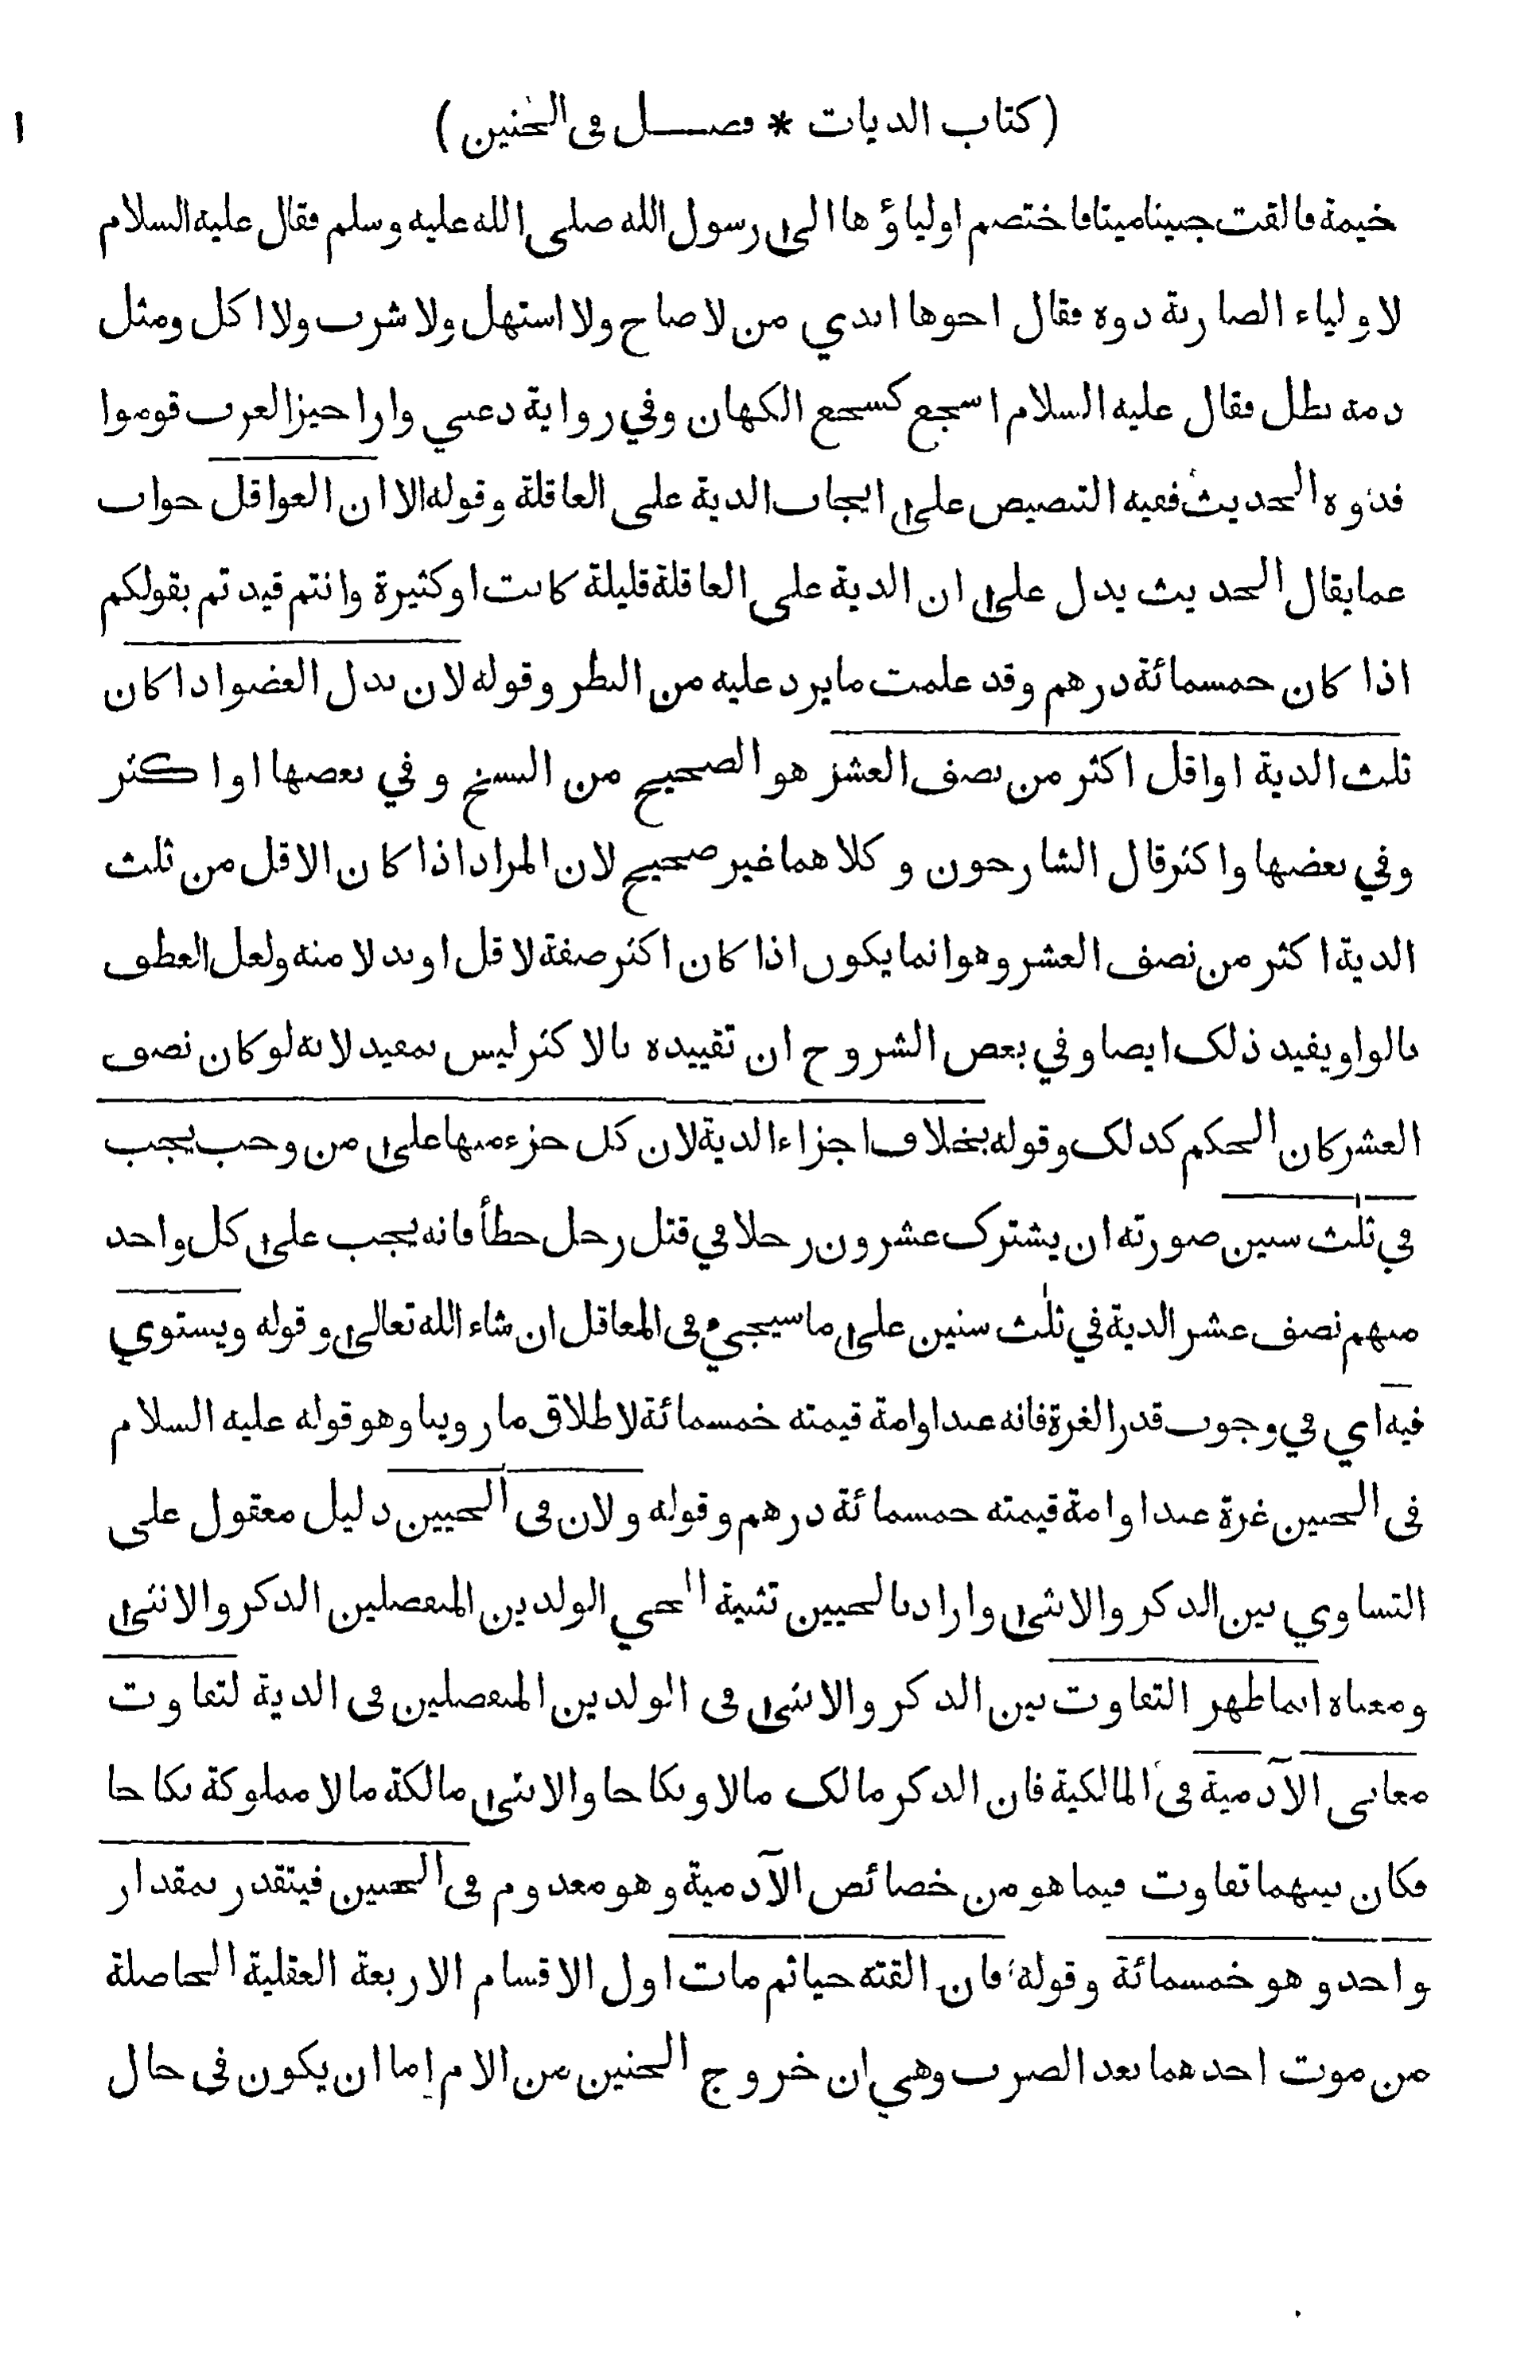 ( كتاب الديات * فصـــل فى الجنين )
١
خيمة فالقت جنينا ميتا فاختصم اولياؤها الى رسول الله صلى الله عليه وسلم فقال عليه السلام
لاولياء الضاربة دوه فقال اخوها اندي من لا صاح ولا استهل ولا شرب ولا اكل ومثل
دمه يطل فقال عليه السلام اسجع كسجع الكهان وفي رواية دعني واراجيز العرب قوموا
فدوه الحديث ففيه التنصيص على ايجاب الدية على العاقلة وقوله الا ان العواقل جواب
عما يقال الحديث يدل على ان الدية على العاقلة قليلة كانت او كثيرة وانتم قيدتم بقولكم
اذا كان خمسمائة درهم وقد علمت ما يرد عليه من النظر وقوله لان بدل العضو اذا كان
ثلث الدية او اقل اكثر من نصف العشر هو الصحيح من النسخ وفي بعضها او اكثر
وفي بعضها واكثر قال الشارحون وكلاهما غير صحيح لان المراد اذا كان الاقل من ثلث
الدية اكثر من نصف العشر وهو انما يكون اذا كان اكثر صفة لاقل او بدلا منه ولعل العطف
بالواو يفيد ذلك ايضا وفي بعض الشروح ان تقييده بالاكثر ليس بمفيد لانه لو كان نصف
العشر كان الحكم كذلك وقوله بخلاف اجزاء الدية لان كل جزء منها على من وجب يجب
في ثلث سنين صورته ان يشترك عشرون رجلا في قتل رجل خطأ فانه يجب على كل واحد
منهم نصف عشر الدية في ثلث سنين على ما سيجيء فى المعاقل ان شاء الله تعالى وقوله ويستوي
فيه اي في وجوب قدر الغرة فانه عبد او امة قيمته خمسمائة لاطلاق ما روينا وهو قوله عليه السلام
فى الجنين غرة عبد او امة قيمته خمسمائة درهم وقوله ولان فى الحيين دليل معقول على
التساوي بين الذكر والانثى واراد بالحيين تثنية الحي الولدين المنفصلين الذكر والانثى
ومعناه انما ظهر التفاوت بين الذكر والانثى فى الولدين المنفصلين فى الدية لتفاوت
معانى الآدمية فى المالكية فان الذكر مالك مالا ونكاحا والانثى مالكة مالا مملوكة نكاحا
فكان بينهما تفاوت فيما هو من خصائص الآدمية وهو معدوم فى الجنين فيتقدر بمقدار
واحد وهو خمسمائة وقوله فان القته حيا ثم مات اول الاقسام الاربعة العقلية الحاصلة
من موت احدهما بعد الضرب وهي ان خروج الجنين من الام إما ان يكون فى حال